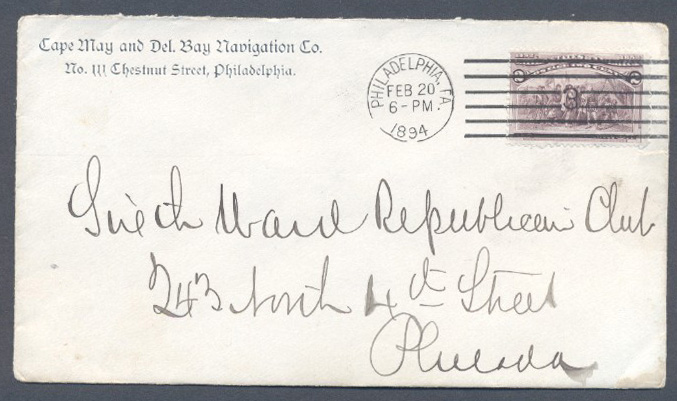 Cape May and Del. Bay Navigation Co.
No. 111 Chestnut Street, Philadelphia.
PHILADELPHIA, PA.
FEB 20
6-PM
1894
2 2
Ward Republican Club
243 North 4th Street
Philada